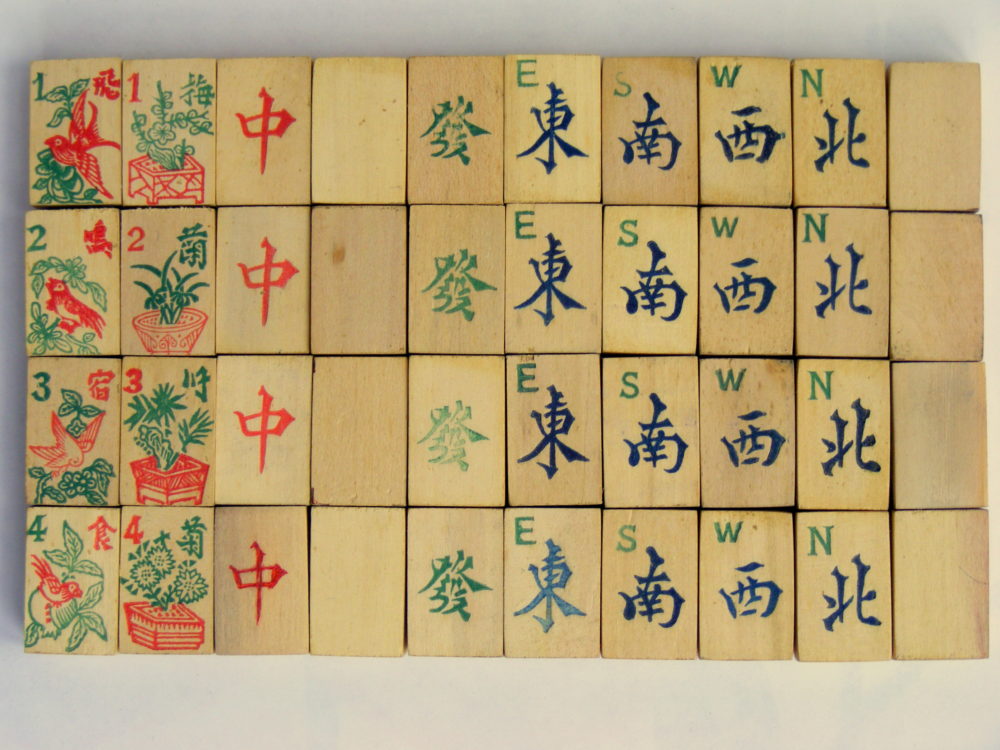 1 飛 1 梅 中 發 E 東 S 南 W 西 N 北
2 鳴 2 蘭 中 發 E 東 S 南 W 西 N 北
3 宿 3 竹 中 發 E 東 S 南 W 西 N 北
4 食 4 菊 中 發 E 東 S 南 W 西 N 北